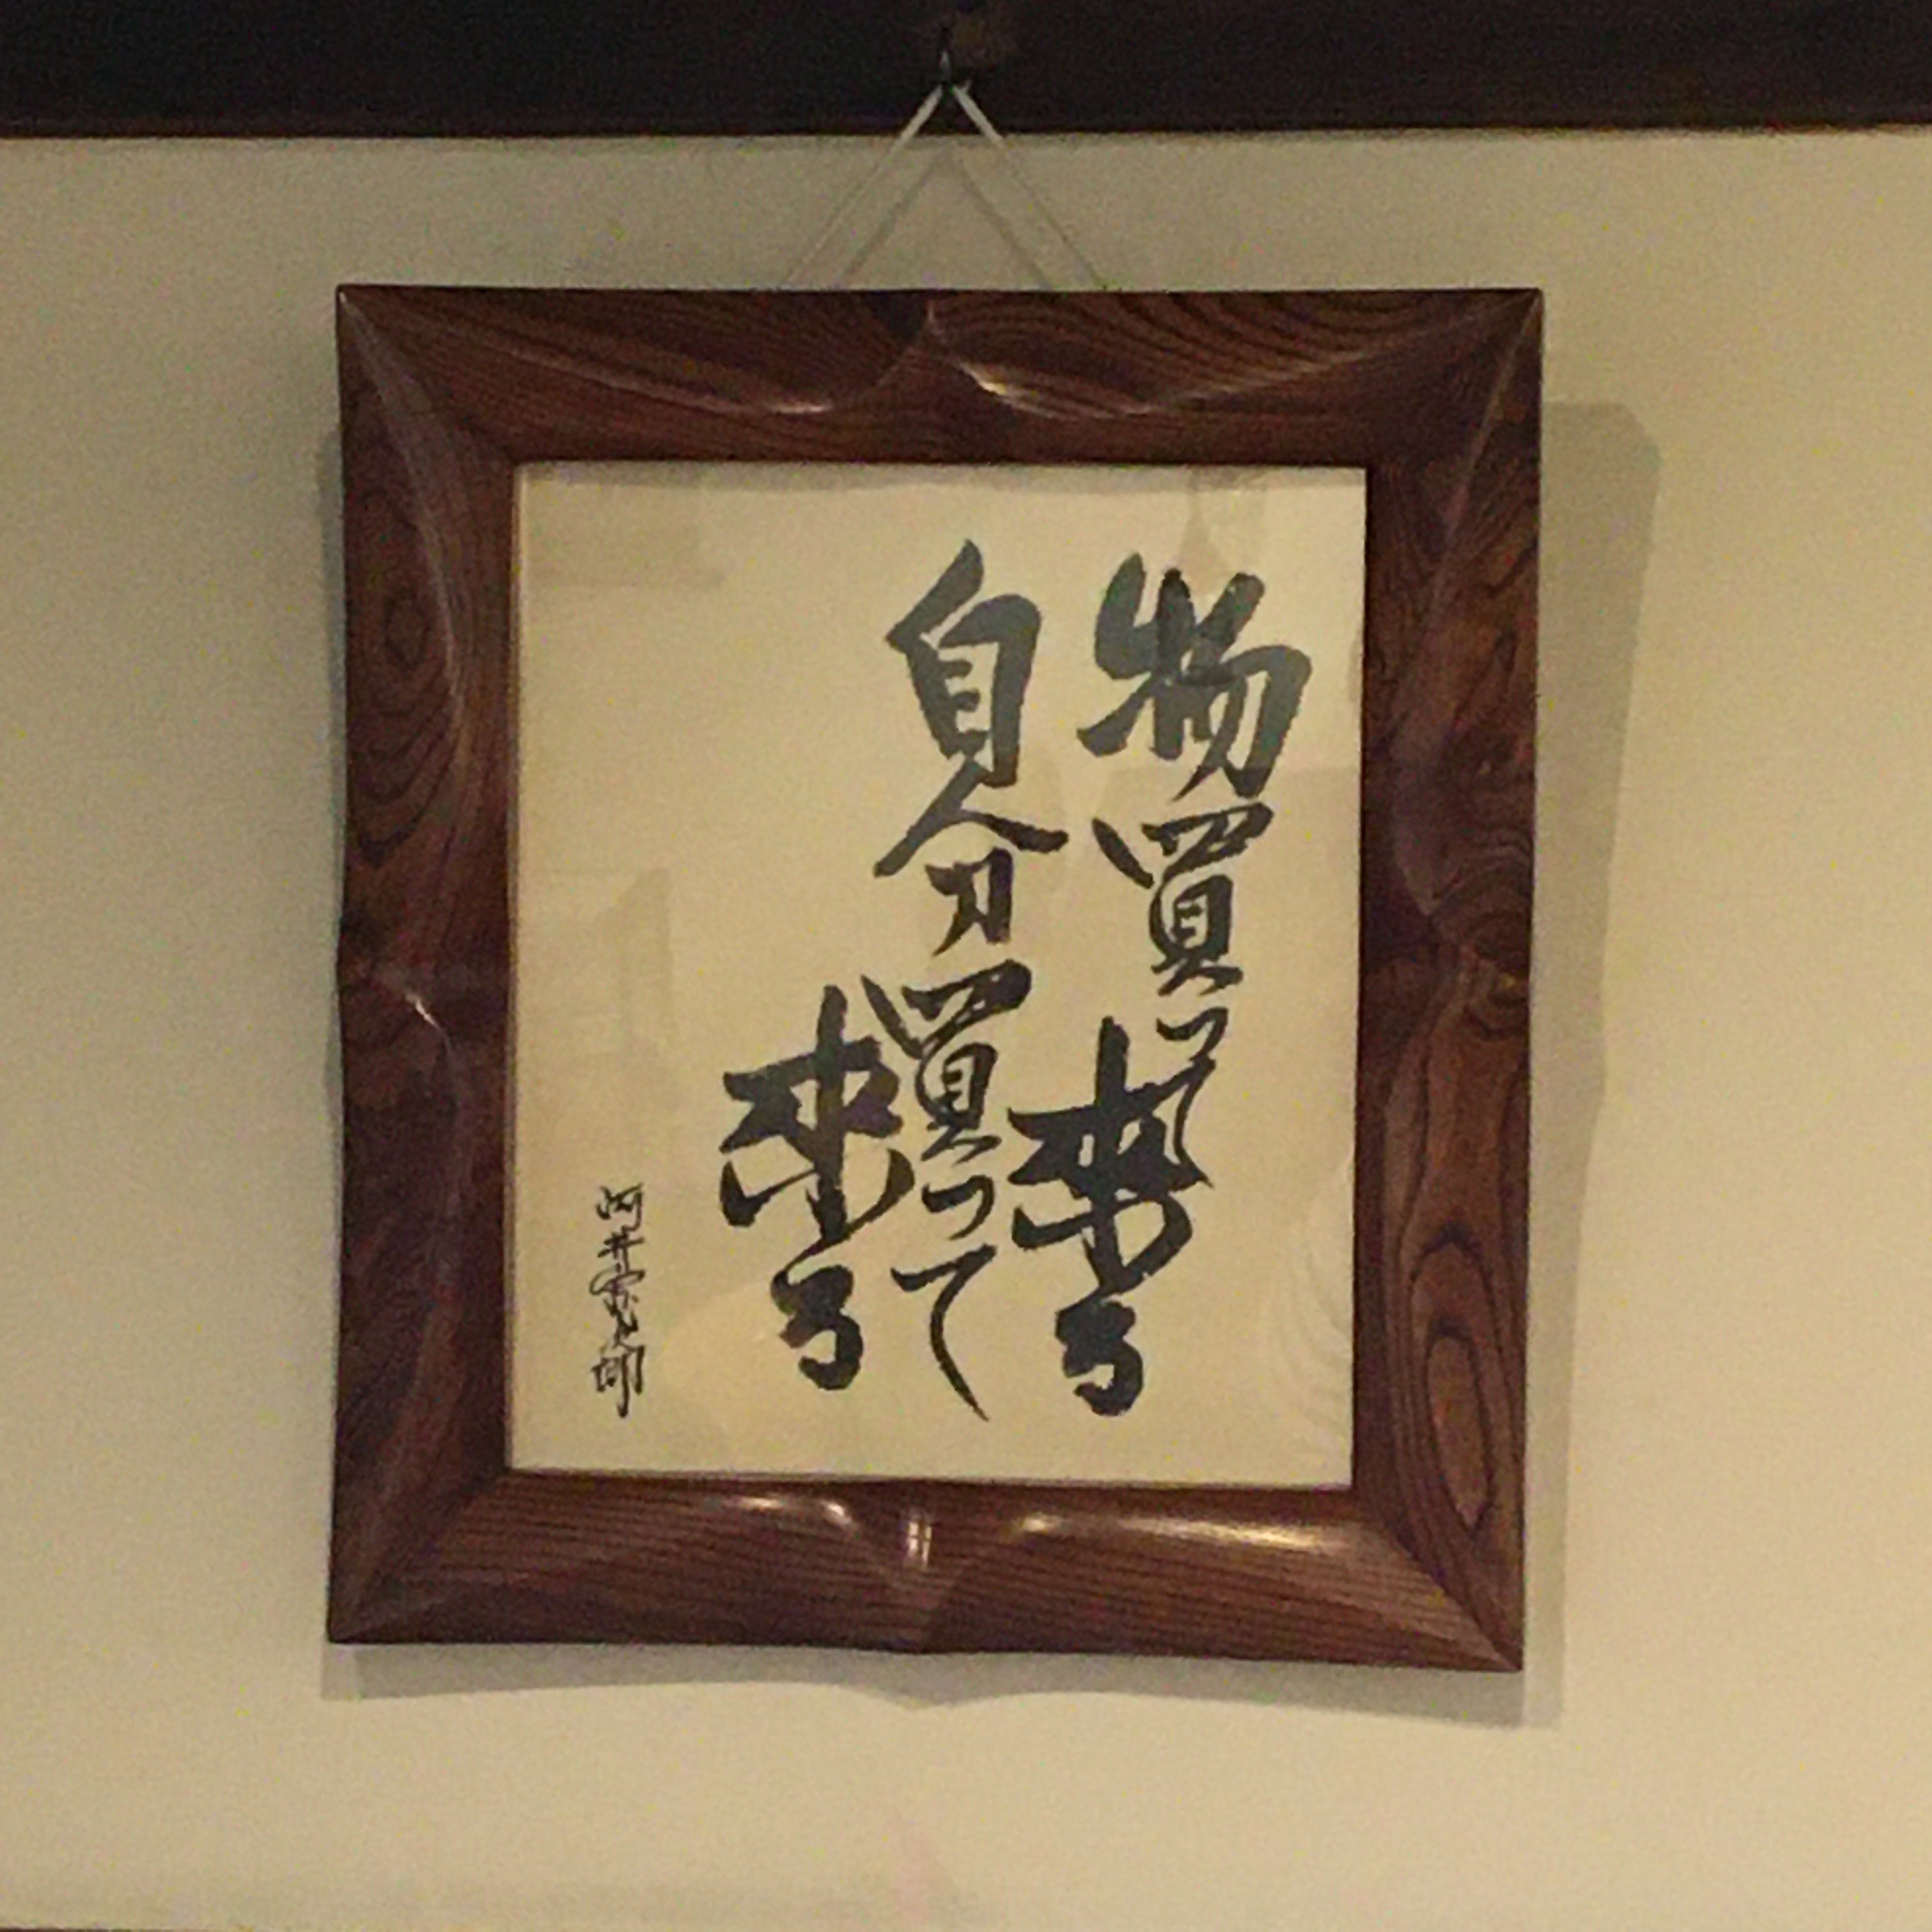 物買って
来る
自分買って
来る
河井寛次郎